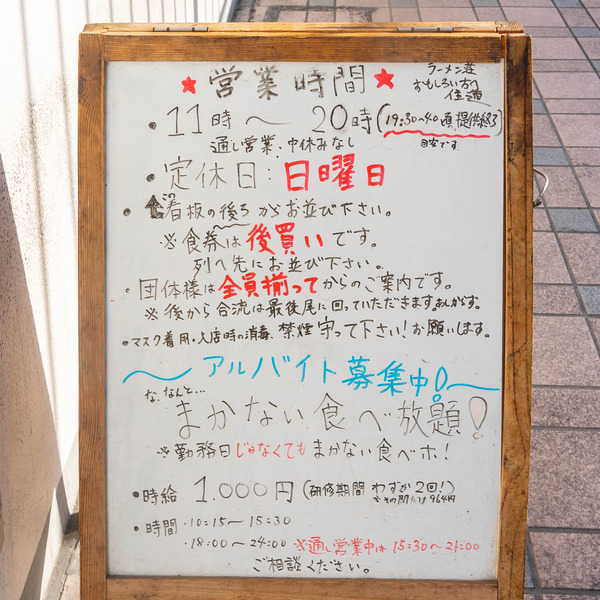 ★営業時間★
ラーメン荘
おもしろい方へ
住道
・11時〜20時(19:30〜40頃提供終了)
目安です
通し営業、中休みなし
・定休日:日曜日
・↑の看板の後ろからお並び下さい。
※食券は後買いです。
列へ先にお並び下さい。
・団体様は全員揃ってからのご案内です。
※後から合流は最後尾に回っていただきます。あんがす。
・マスク着用・入店時の消毒、禁煙 守って下さい!お願いします。
〜アルバイト募集中!〜
な、なんと...
まかない食べ放題!
※勤務日じゃなくてもまかない食べホ!
・時給 1.000円(研修期間 わずか2回!)
※その間だけ964円
・時間・10:15〜15:30
・18:00〜24:00 ※通し営業中は15:30〜21:00
ご相談ください。